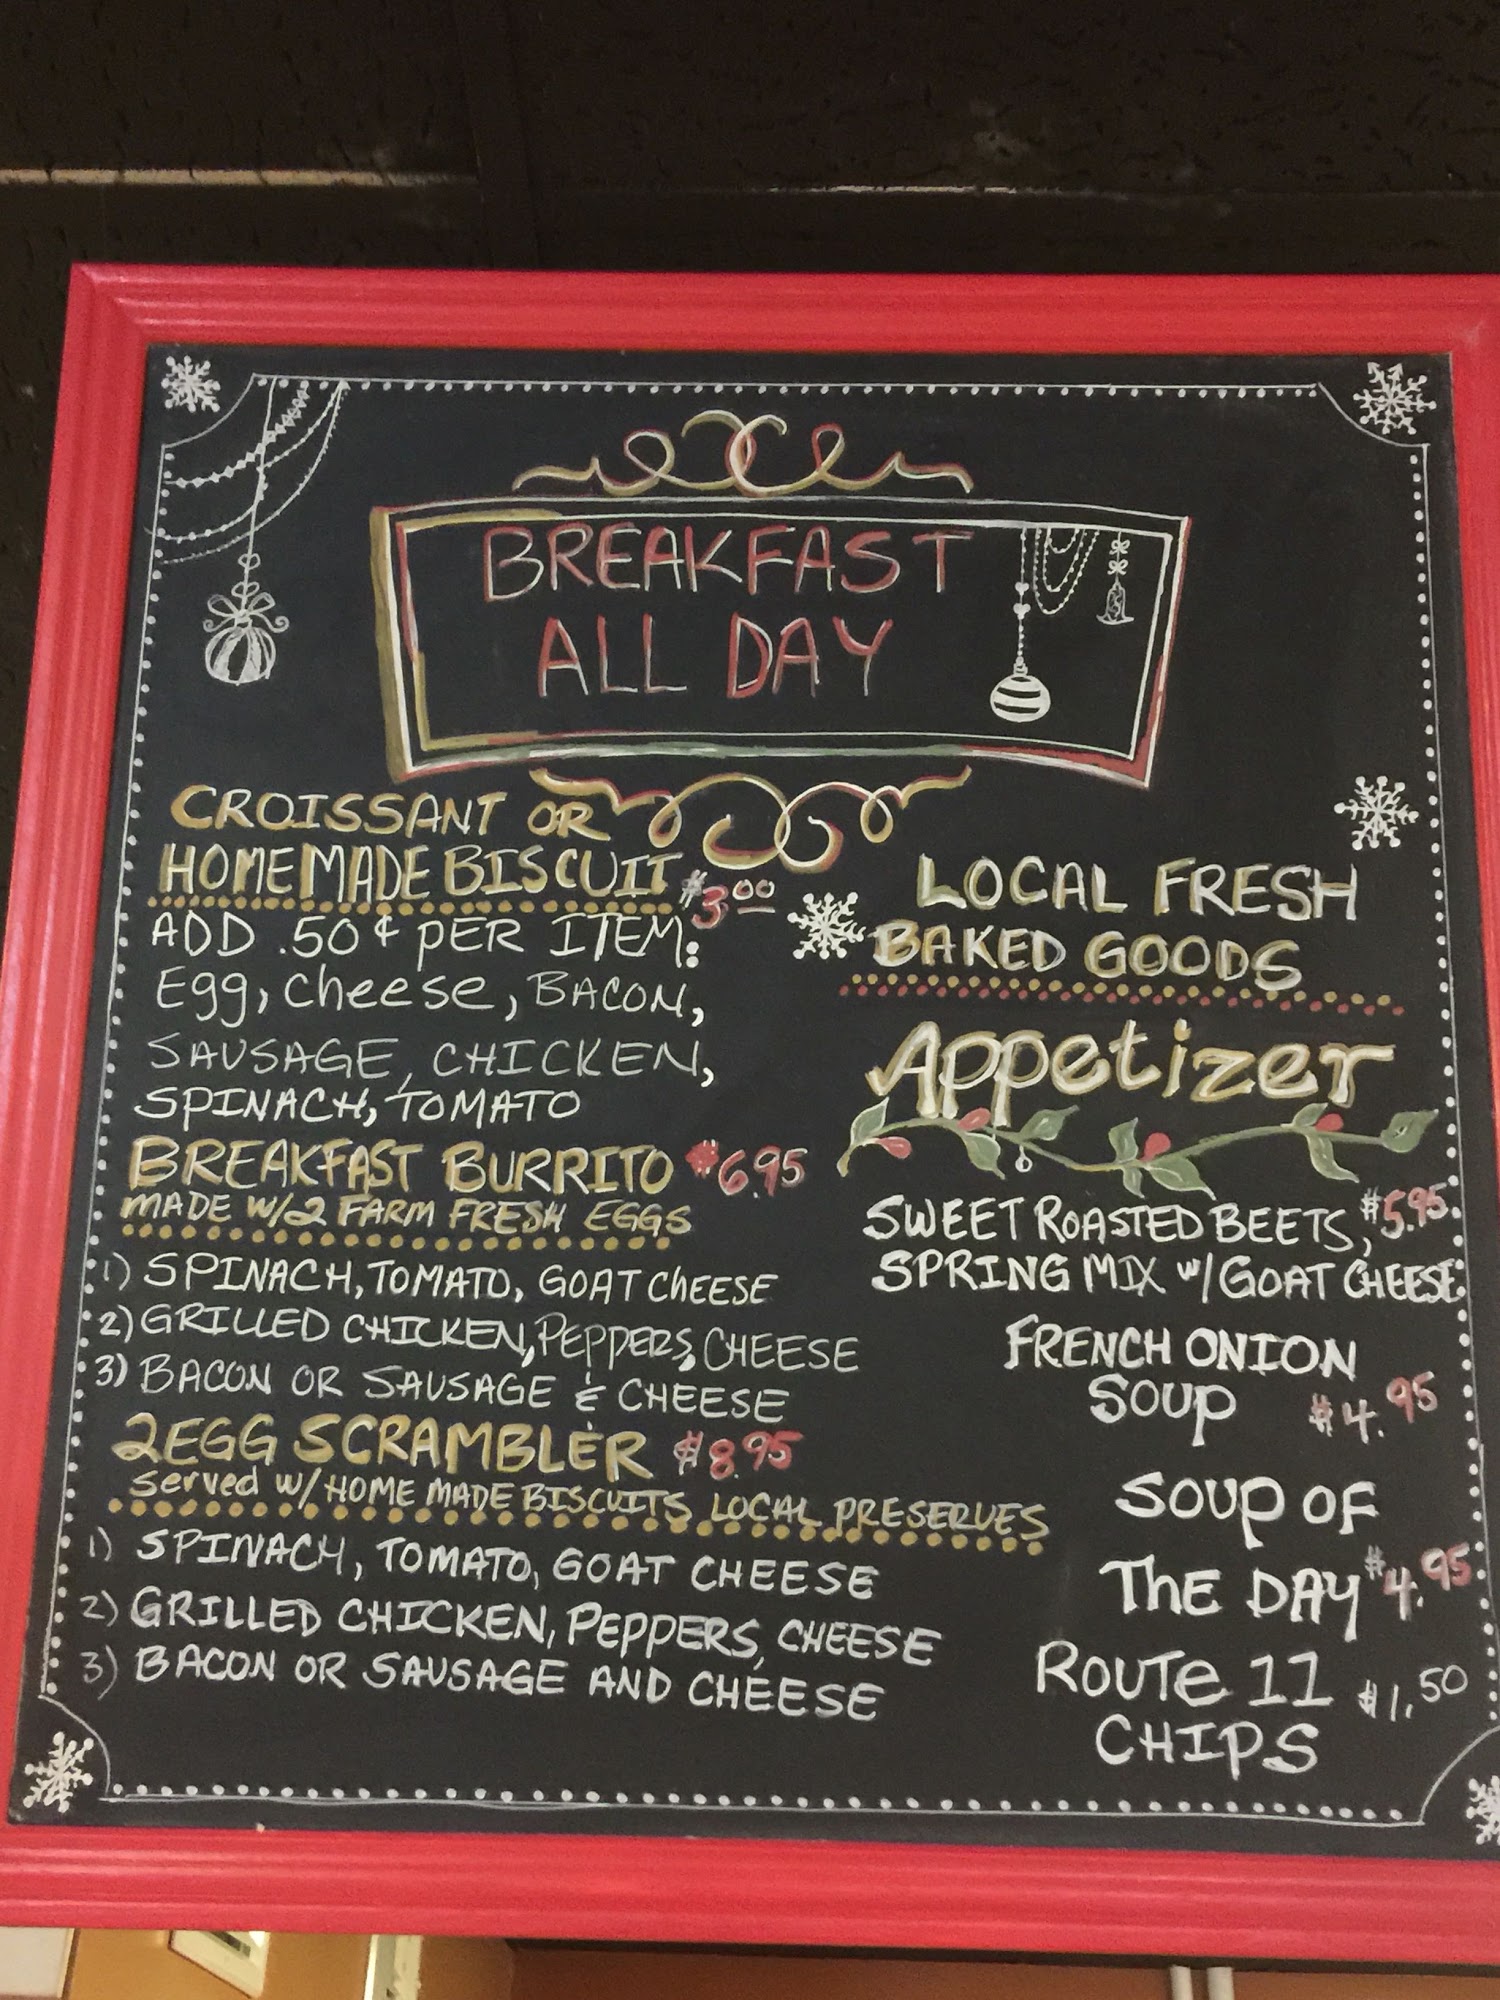 BREAKFAST
ALL DAY
CROISSANT OR
HOMEMADE BISCUIT $3.00
ADD .50¢ PER ITEM:
Egg, Cheese, BACON,
SAUSAGE, CHICKEN,
SPINACH, TOMATO
BREAKFAST BURRITO $6.95
MADE W/2 FARM FRESH EGGS
1) SPINACH, TOMATO, GOAT CHEESE
2) GRILLED CHICKEN, PEPPERS, CHEESE
3) BACON OR SAUSAGE & CHEESE
2 EGG SCRAMBLER $8.95
Served w/ HOME MADE BISCUITS LOCAL PRESERVES
1) SPINACH, TOMATO, GOAT CHEESE
2) GRILLED CHICKEN, PEPPERS, CHEESE
3) BACON OR SAUSAGE AND CHEESE
LOCAL FRESH
BAKED GOODS
Appetizer
SWEET ROASTED BEETS, $5.95
SPRING MIX w/ GOAT CHEESE
FRENCH ONION
SOUP $4.95
SOUP OF
THE DAY $4.95
ROUTE 11 $1.50
CHIPS